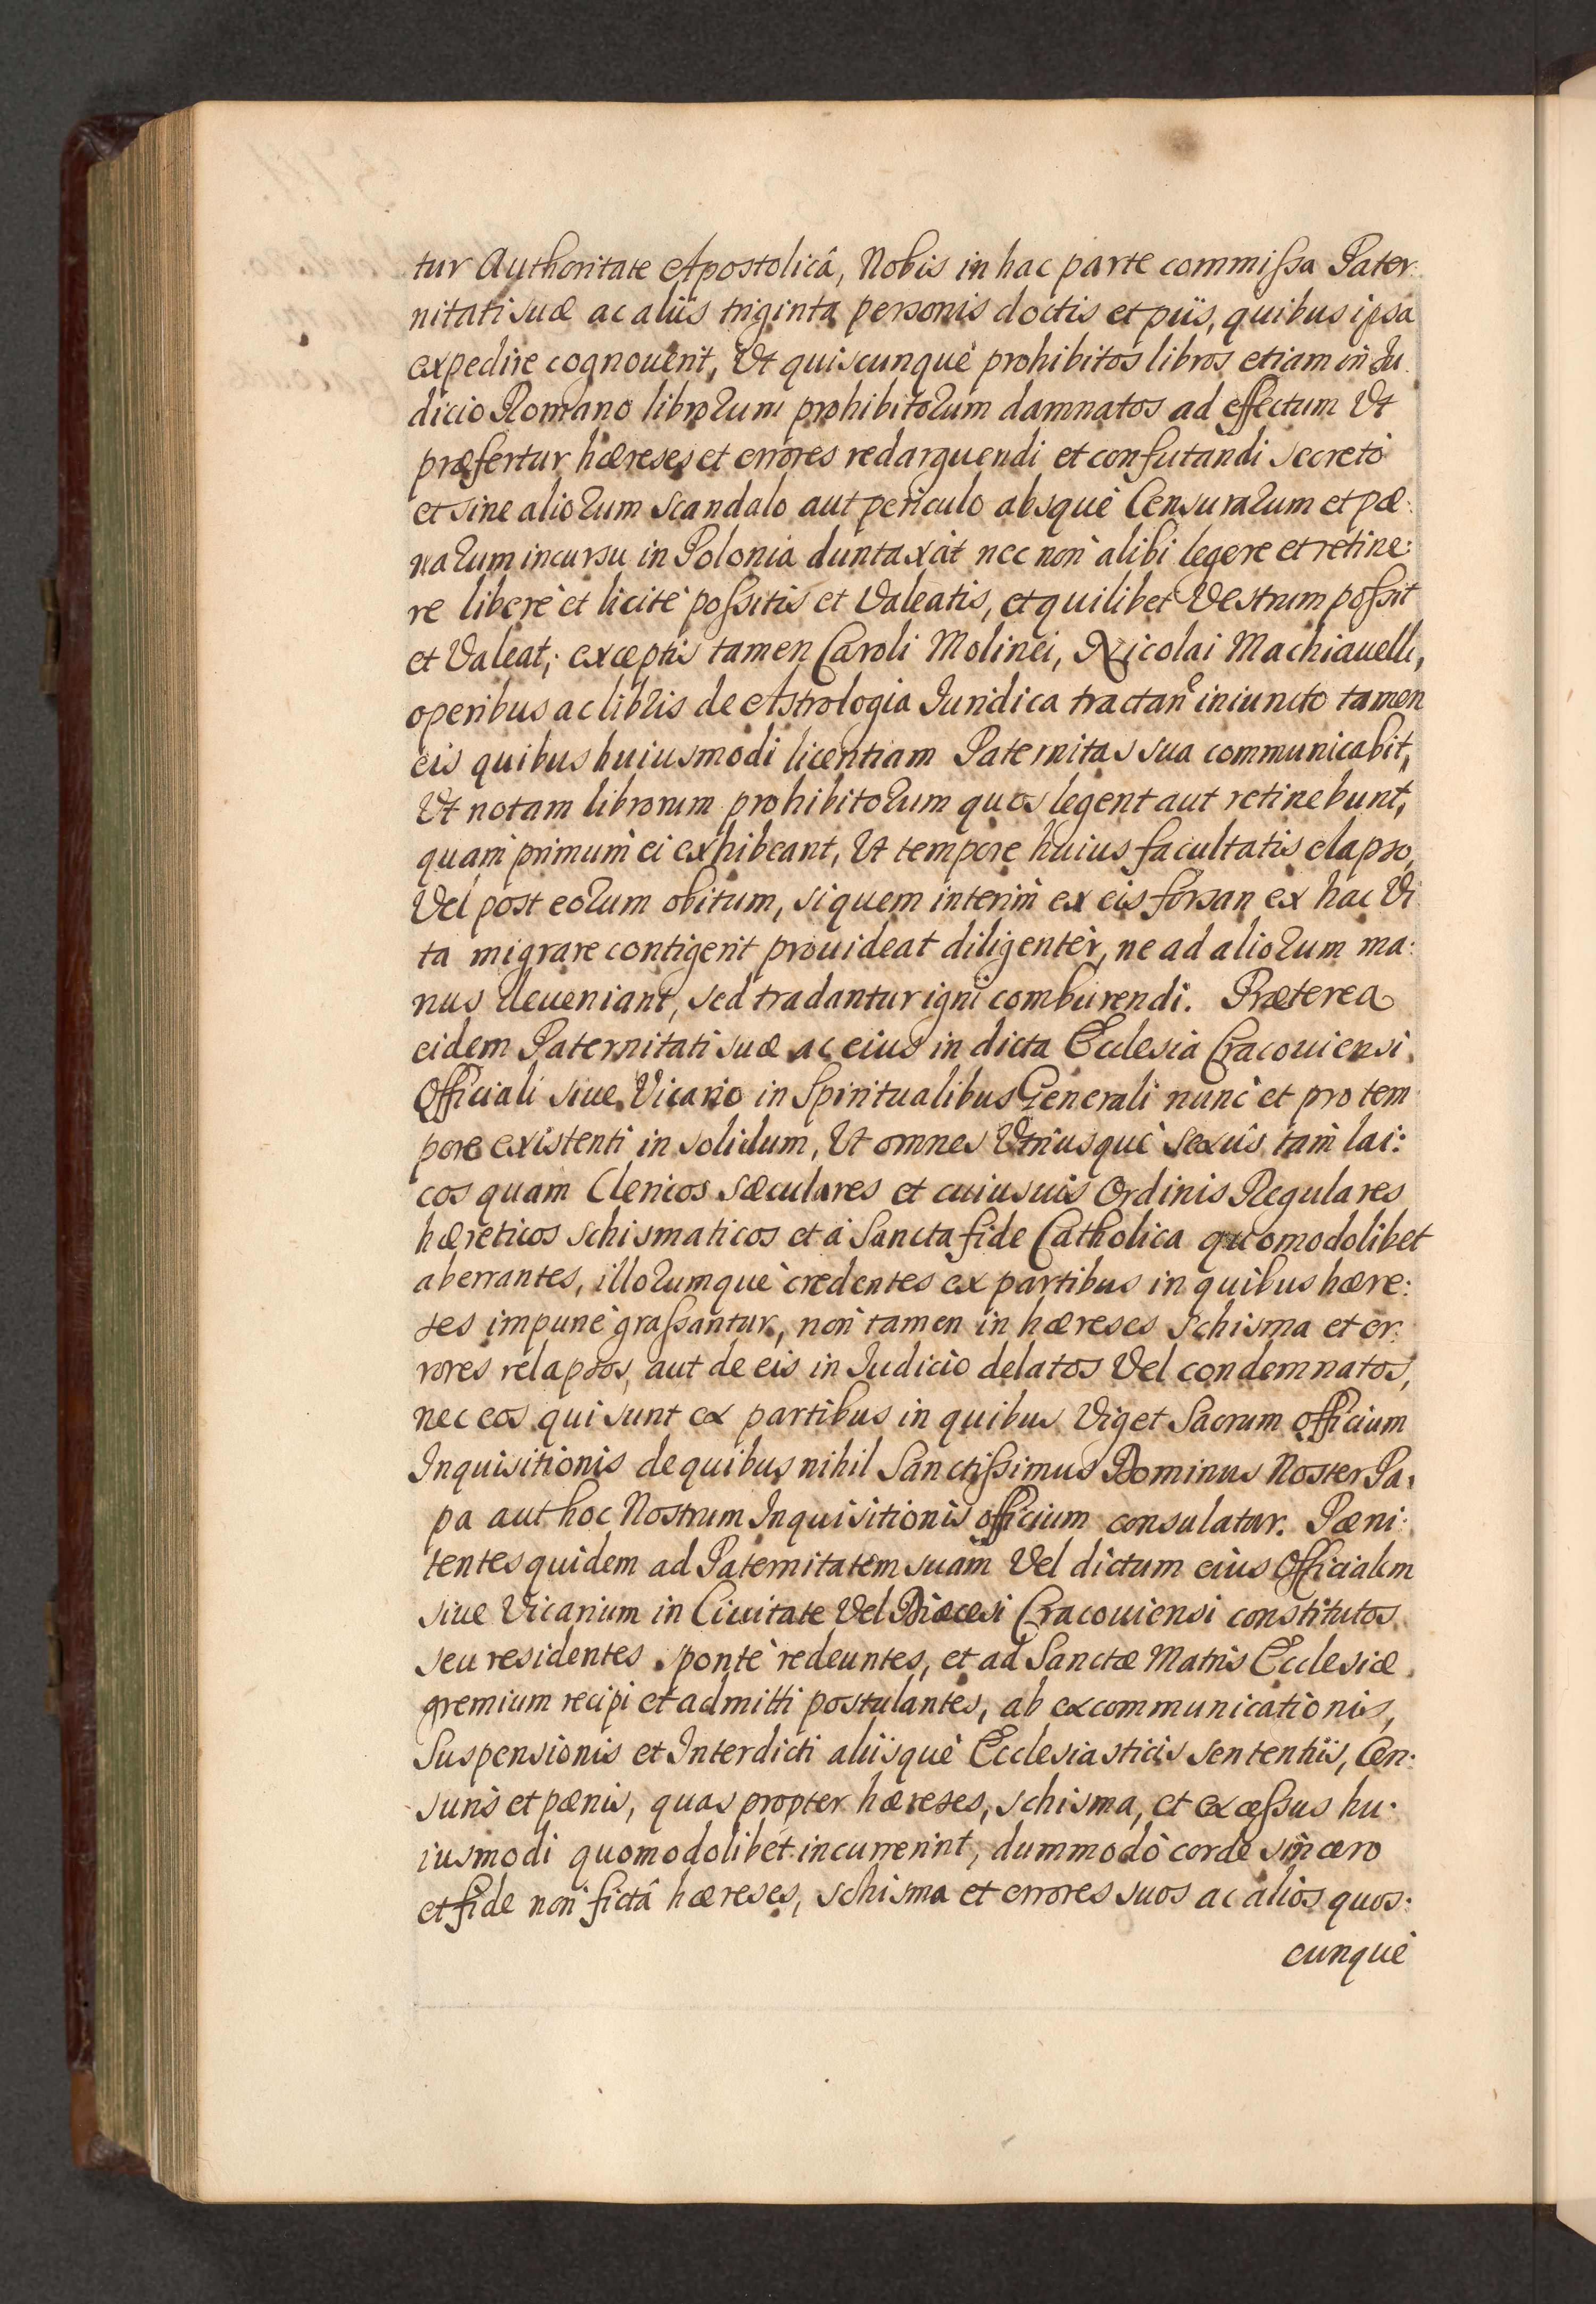 tur Authoritate Apostolicâ, Nobis in hac parte commissa Pater:
nitati suæ ac aliis triginta personis doctis et piis, quibus ipsa
expedire cognouerit, Vt quiscunquè prohibitos libros etiam in Ju
dicio Romano librorum prohibitorum damnatos ad effectum Vt
præfertur hæreses et errores redarguendi et confutandi secretò
et sine aliorum scandalo aut periculo absquè Censurarum et pæ:
narum incursu in Polonia duntaxàt nec non alibi legere et retine:
re liberè et licitè possitis et Valeatis, et quilibet Vestrum possit
et Valeat; exceptis tamen Caroli Molinei, Nicolai Machiauelli,
operibus ac libris de Astrologia Iuridica tractan^e iniuncto tamen
eis quibus huiusmodi licentiam Paternitas sua communicabit,
Vt notam librorum prohibitorum quos legent aut retinebunt,
quam primum ei exhibeant, Vt tempore huius facultatis elapso,
Vel post eorum obitum, si quem interim ex eis forsan ex hac Vi
ta migrare contigerit prouideat diligentèr, ne ad aliorum ma:
nus deueniant, sed tradantur igni comburendi. Præterea
eidem Paternitati suæ ac eius in dicta Ecclesia Cracouiensi
Officiali siue Vicario in Spiritualibus Generali nunc et pro tem
pore existenti in solidum, Vt omnes Vtriusquè sexûs tam lai:
cos quam Clericos sæculares et cuiusuis Ordinis Regulares
hæreticos schismaticos et à Sancta fide Catholica quomodolibet
aberrantes, illorumquè credentes ex partibus in quibus hære:
ses impunè grassantur, non tamen in hæreses schisma et er:
rores relapsos, aut de eis in Iudicio delatos Vel condemnatos,
nec eos qui sunt ex partibus in quibus Viget Sacrum Officium
Inquisitionis de quibus nihil Sanctissimus Dominus Noster Pa:
pa aut hoc Nostrum Inquisitionis officium consulatur. Pæni:
tentes quidem ad Paternitatem suam Vel dictum eius Officialem
siue Vicarium in Ciuitate Vel Diæcesi Cracouiensi constitutos
seu residentes spontè redeuntes, et ad Sanctæ Matris Ecclesiæ
gremium recipi et admitti postulantes, ab excommunicationis,
Suspensionis et Interdicti aliisquè Ecclesiasticis sententiis, Cen:
suris et pænis, quas propter hæreses, schisma, et excessus hu:
iusmodi quomodolibet incurrerint, dummodò corde sincero
et fide non fictâ hæreses, schisma et errores suos ac alios quos:
cunquè